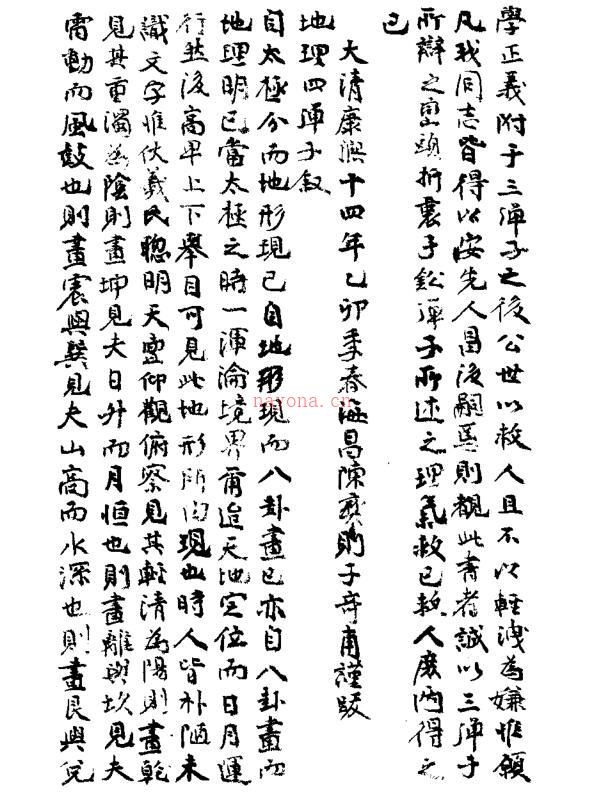 學正義附于三彈子之後公世以救人且不以輕洩為嫌惟願
凡我同志皆得以安先人昌後嗣焉則觀此書者誠以三彈子
所辯之巒頭折衷于鉛彈子所述之理氣救己救人庶兩得之
已
大清康熙十四年乙卯季春海昌陳 則子奇甫謹跋
地理四彈子叙
自太極分而地形現已自地形現而八卦畫已亦自八卦畫而
地理明已當太極之時一渾淪境界爾迨天地定位而日月運
行然後高卑上下舉目可見此地形所由現也時人皆朴陋未
識文字惟伏羲氏聰明天亶仰觀俯察見其輕清為陽則畫乾
見其重濁為陰則畫坤見夫日升而月恒也則畫離與坎見夫
雷動而風鼓也則畫震與巽見夫山高而水深也則畫艮與兌
nayona.cn